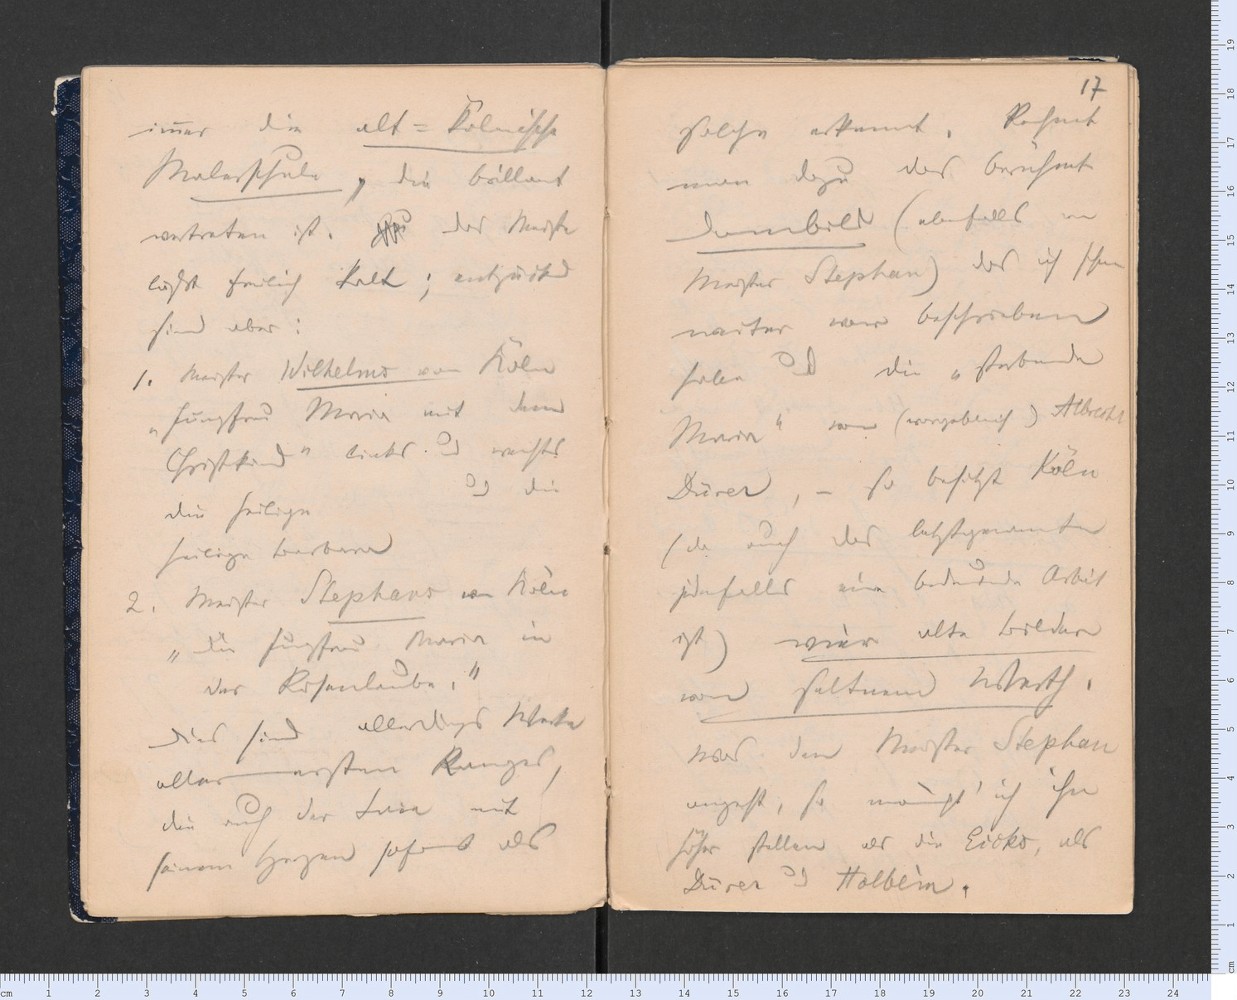 immer die alt=Kölnische
Malerschule, die brillant
vertreten ist. das Meiste
läßt freilich kalt; entzückend
sind aber:
1. Meister Wilhelms von Köln
„Jungfrau Maria mit dem
Christkind" links u rechts
die heilige u die
heilige Barbara
2. Meister Stephans von Köln
„die Jungfrau Maria in
der Rosenlaube."
Dies sind allerdings Werke
allerersten Ranges,
die auch der Laie mit
seinem Herzen sofort als
17
solche erkennt. Rechnet
man dazu das berühmte
Dombild (ebenfalls von
Meister Stephan) das ich schon
weiter vorn beschrieben
habe u die „sterbende
Maria" von (vorgeblich) Albrecht
Dürer, – so besitzt Köln
(da auch das letztgenannte
jedenfalls eine bedeutende Arbeit
ist) vier alte Bilder
von seltnem Werth.
Was den Meister Stephan
angeht, so möcht' ich ihn
höher stellen als die Eicks, als
Dürer u Holbein.